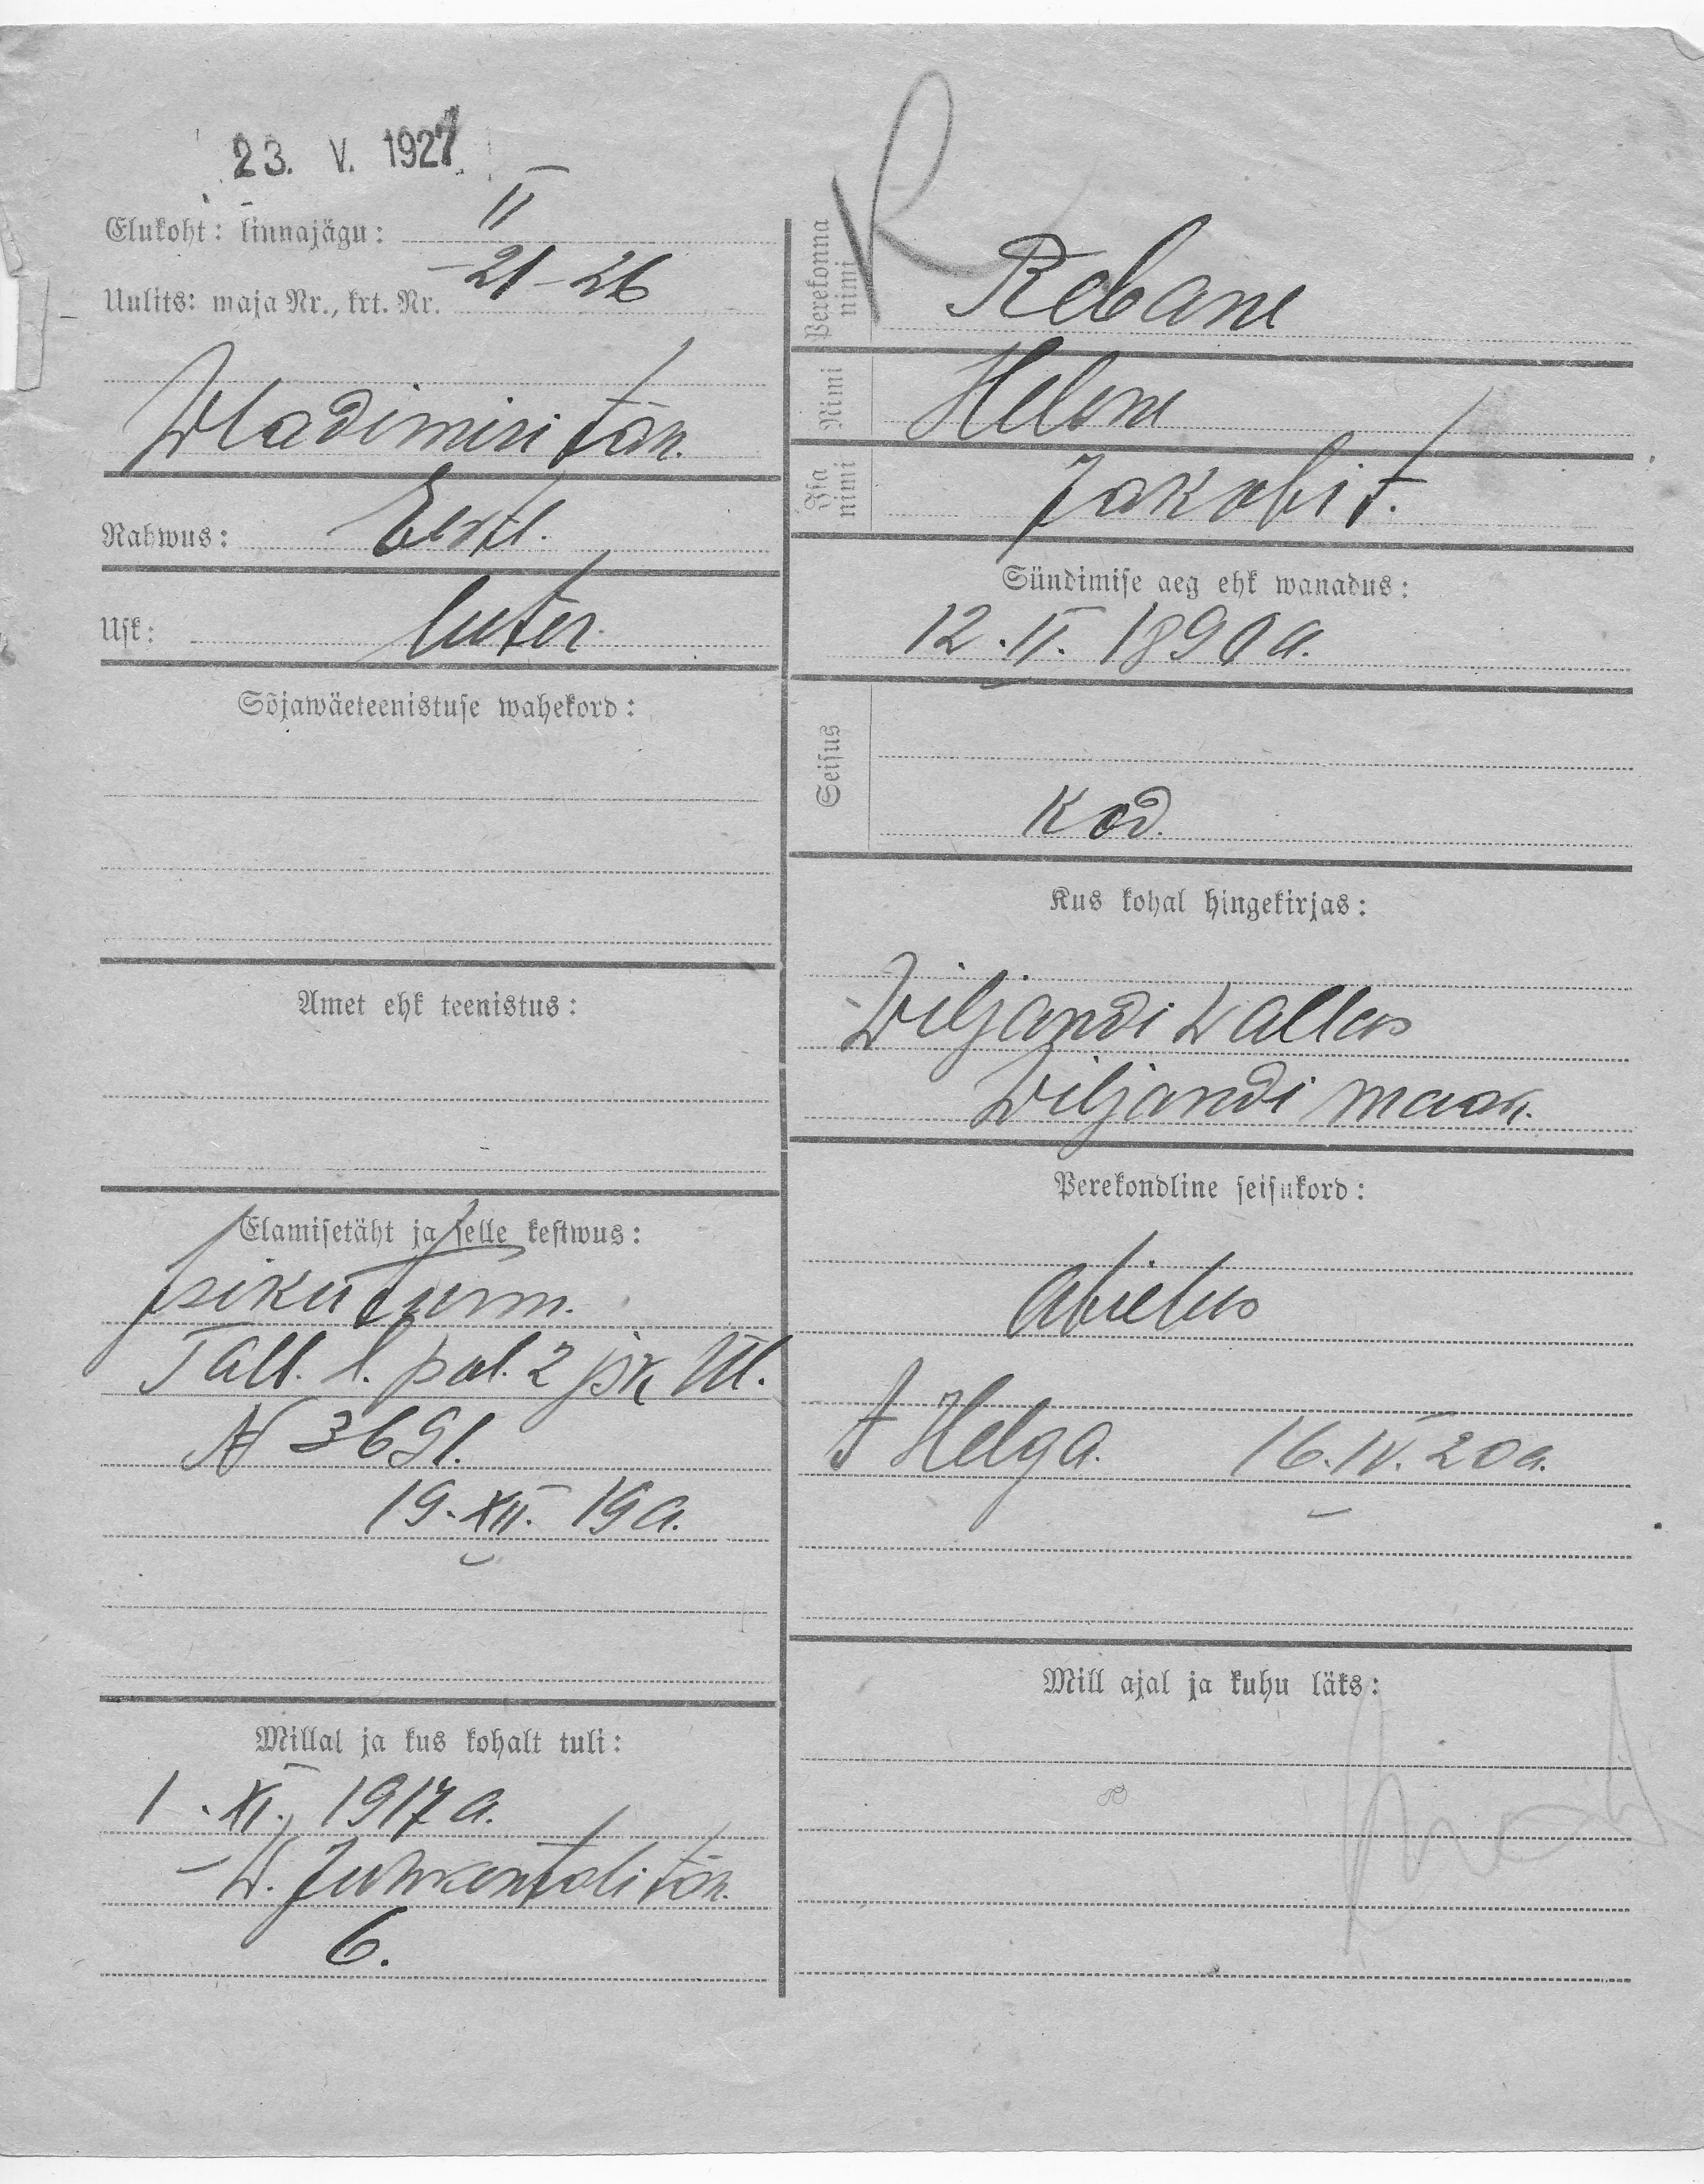 23. V. 1927
Elukoht: linnajägu: II
Uulits: maja Nr., krt. Nr. 21-26
Wladimiri tän.
Rahwus: Eestl.
Usk: luter.
Sõjawäeteenistuse wahekord:
Amet ehk teenistus:
Elamisetäht ja selle kestwus:
Isikutunn.
Tall. l. pol. 2 jsk ül.
N 3691.
19. XII. 19 a.
Millal ja kus kohalt tuli:
1. XI. 1917 a.
W. Juhkentali tän.
6.
R
Perekonna nimi Rebane
Nimi Helene
Isa nimi Jakobi t.
Sündimise aeg ehk wanadus:
12. II. 1890 a.
Seisus
Kod.
Kus kohal hingekirjas:
Wiljandi wallas
Wiljandi maak.
Perekondline seisukord:
abielus
t Helga. 16. IV. 20 a.
Mill ajal ja kuhu läks: